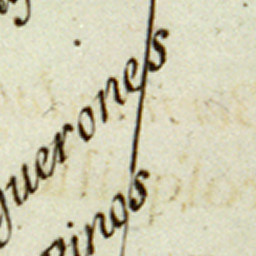 guerones
Pinos